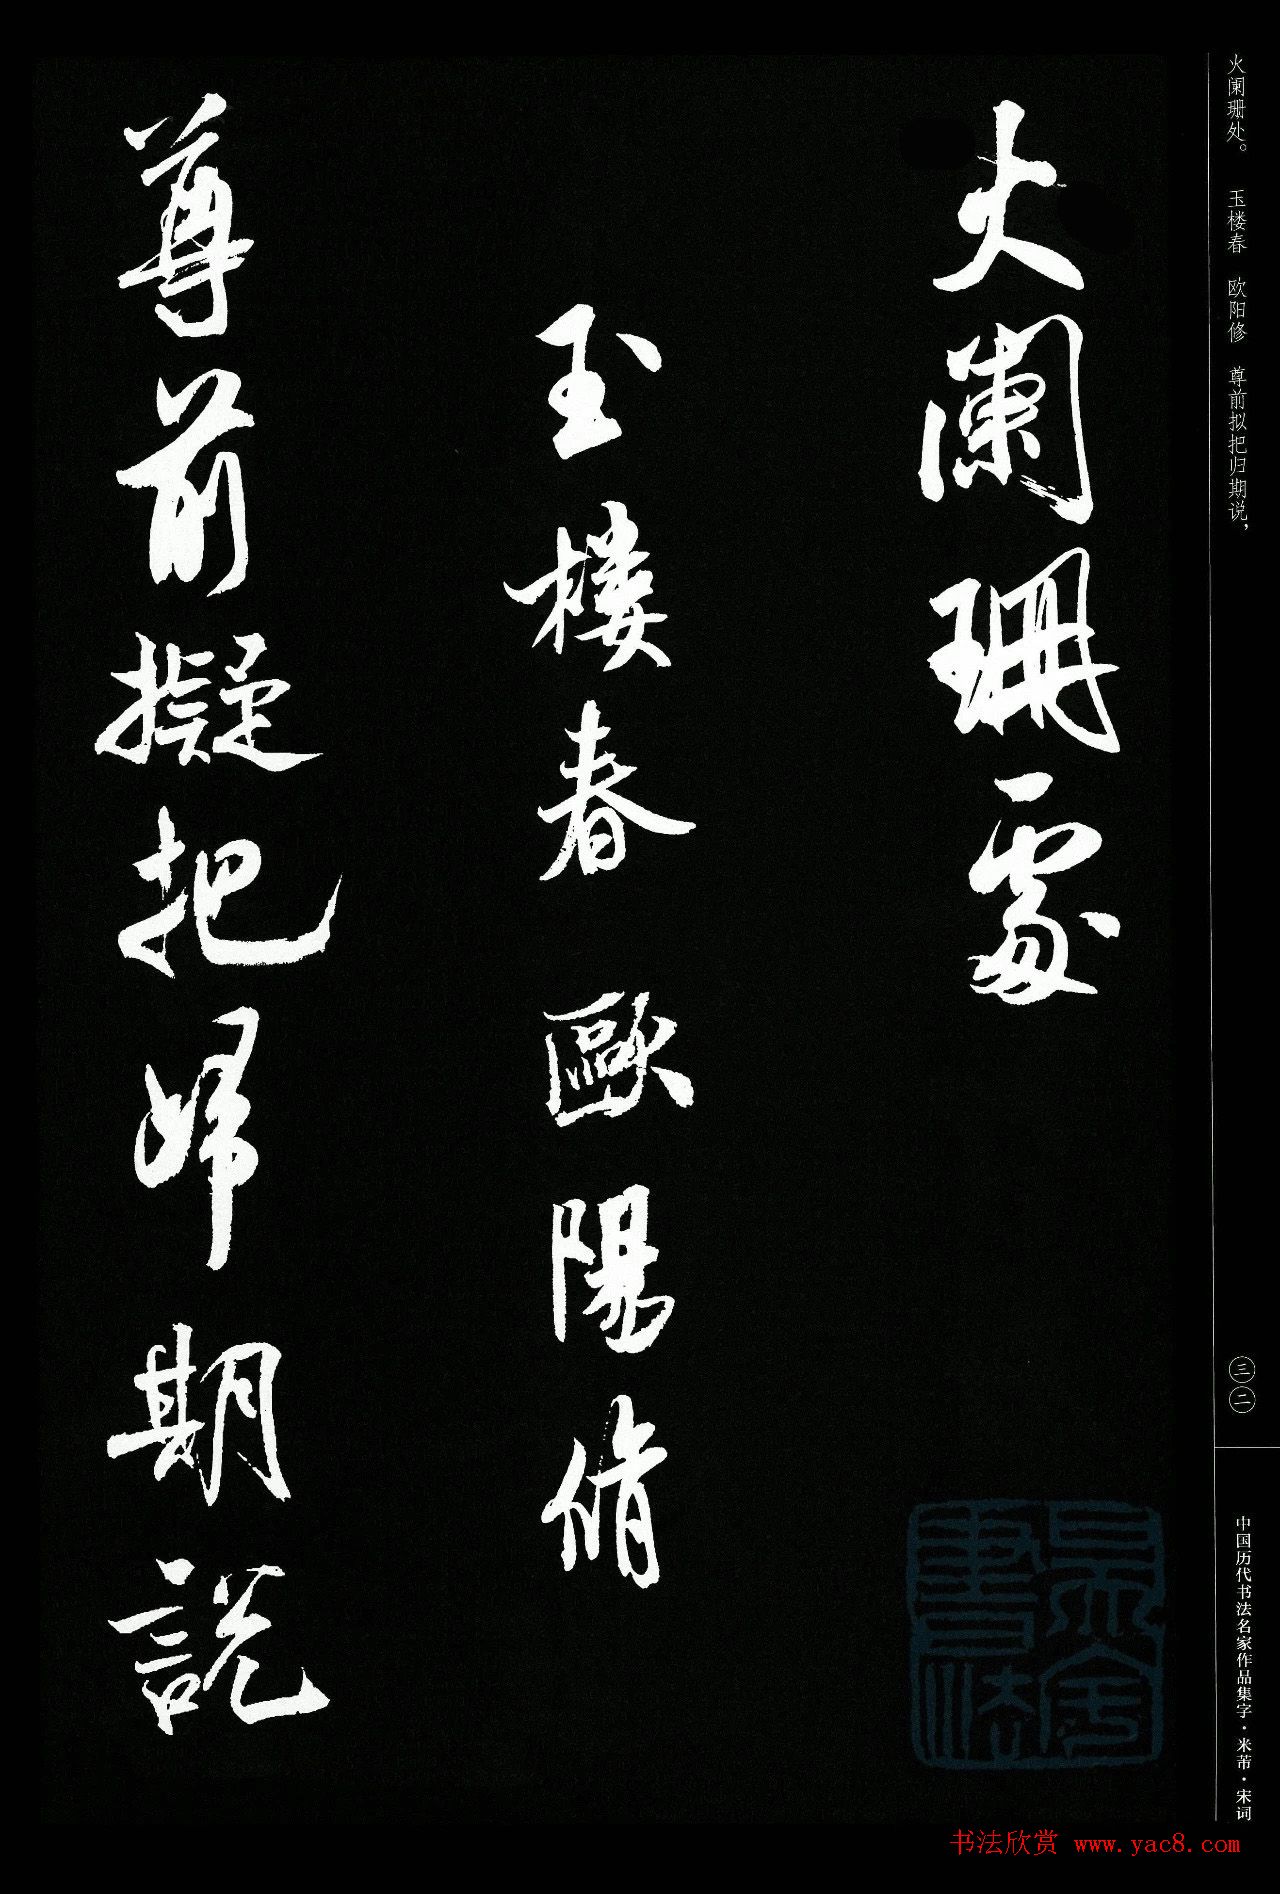 火闌珊處
玉樓春　歐陽脩
尊前擬把歸期說
火阑珊处。　玉楼春　欧阳修　尊前拟把归期说，
三二
中国历代书法名家作品集字·米芾·宋词
书法欣赏 www.yac8.com